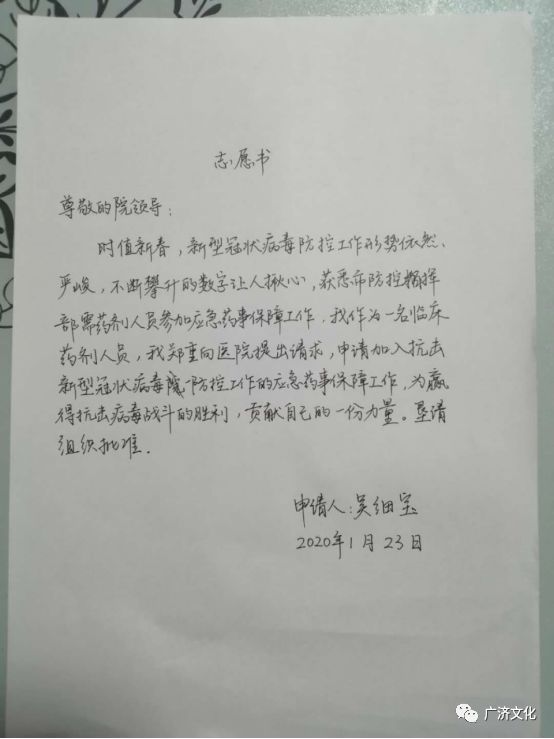 志愿书
尊敬的院领导：
时值新春，新型冠状病毒防控工作形势依然
严峻，不断攀升的数字让人揪心，获悉市防控指挥
部需药剂人员参加应急药事保障工作，我作为一名临床
药剂人员，我郑重向医院提出请求，申请加入抗击
新型冠状病毒防控工作的应急药事保障工作，为赢
得抗击病毒战斗的胜利，贡献自己的一份力量。恳请
组织批准．
申请人：吴细宝
2020年1月23日
广济文化